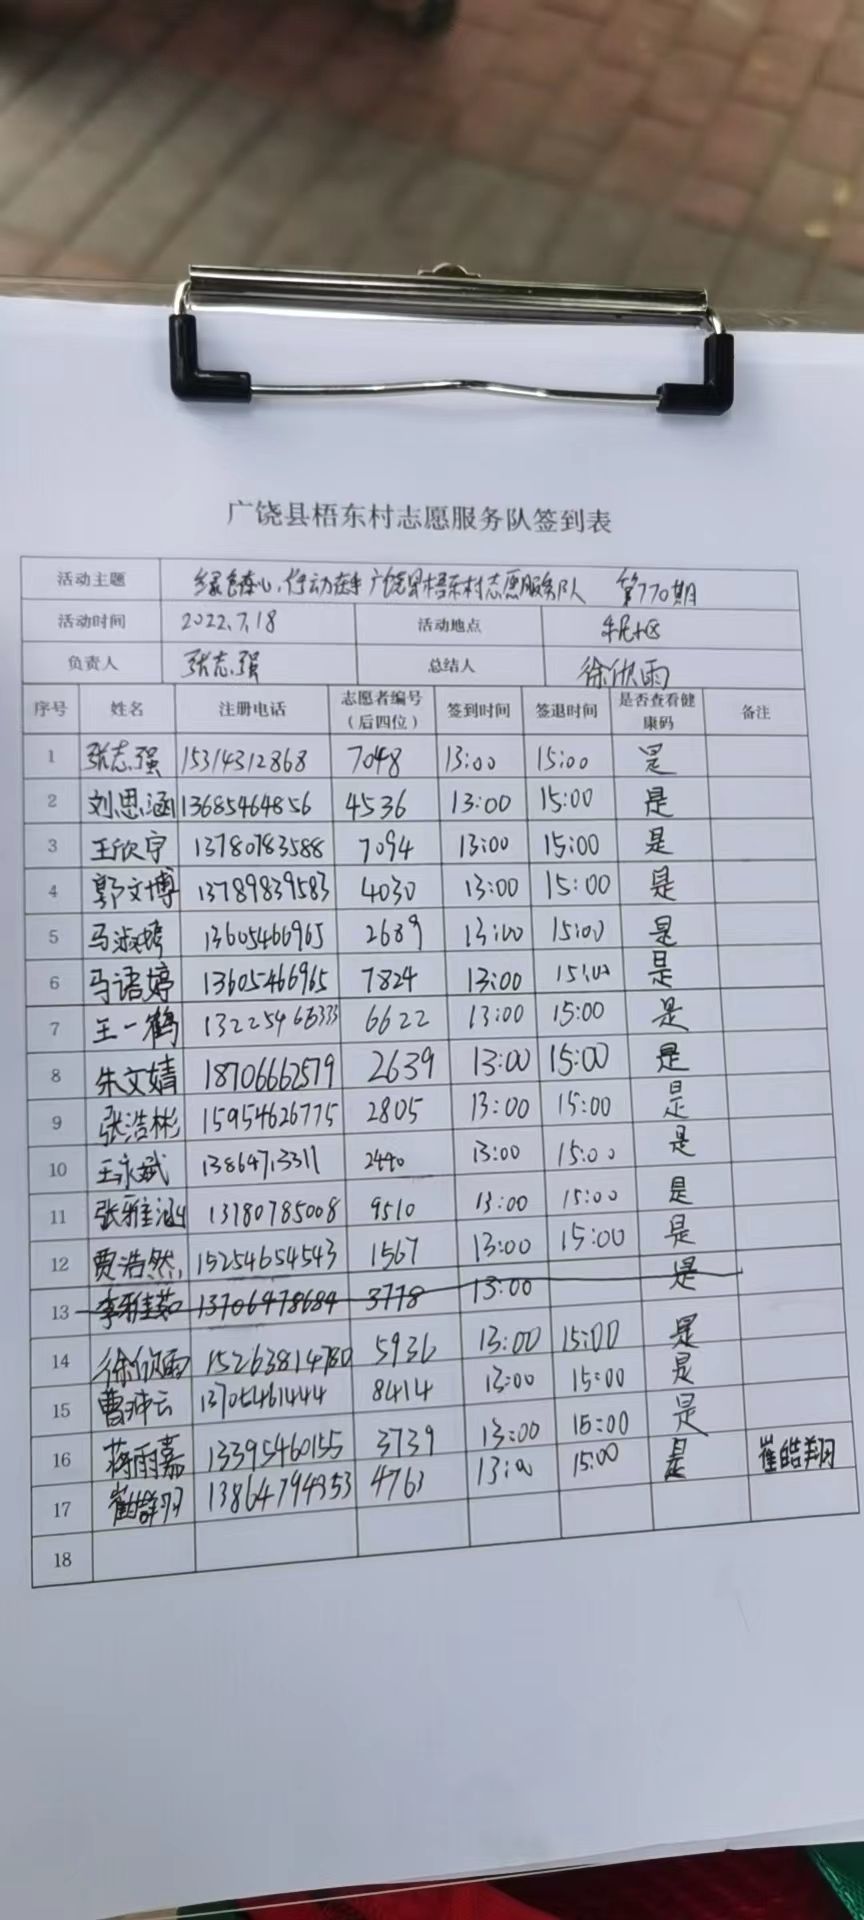 广饶县梧东村志愿服务队签到表
活动主题 绿色在心,行动在手 广饶县梧东村志愿服务队 第770期
活动时间 2022.7.18 活动地点
负责人 张志强 总结人 徐欣雨
序号 姓名 注册电话 志愿者编号（后四位） 签到时间 签退时间 是否查看健康码 备注
1 张志强 15314312868 7048 13:00 15:00 是
2 刘思涵 13685464856 4536 13:00 15:00 是
3 王欣宇 13780783588 7094 13:00 15:00 是
4 郭文博 13789839583 4030 13:00 15:00 是
5 马淑婷 13605466965 2689 13:00 15:00 是
6 马诺婷 13605466965 7824 13:00 15:00 是
7 王一鹤 13225466333 6622 13:00 15:00 是
8 朱文婧 18706662579 2639 13:00 15:00 是
9 张浩彬 15954626775 2805 13:00 15:00 是
10 王永斌 13864713311 2440 13:00 15:00 是
11 张雅涵 13780785008 9510 13:00 15:00 是
12 贾浩然 15254654543 1567 13:00 15:00 是
13 李雅茹 13706478684 3778 13:00 是
14 徐欣雨 15263814780 5936 13:00 15:00 是
15 曹冲云 13705461444 8414 13:00 15:00 是
16 蒋雨嘉 13395460155 3739 13:00 15:00 是
17 崔皓翔 13864794353 4763 13:00 15:00 是 崔皓翔
18